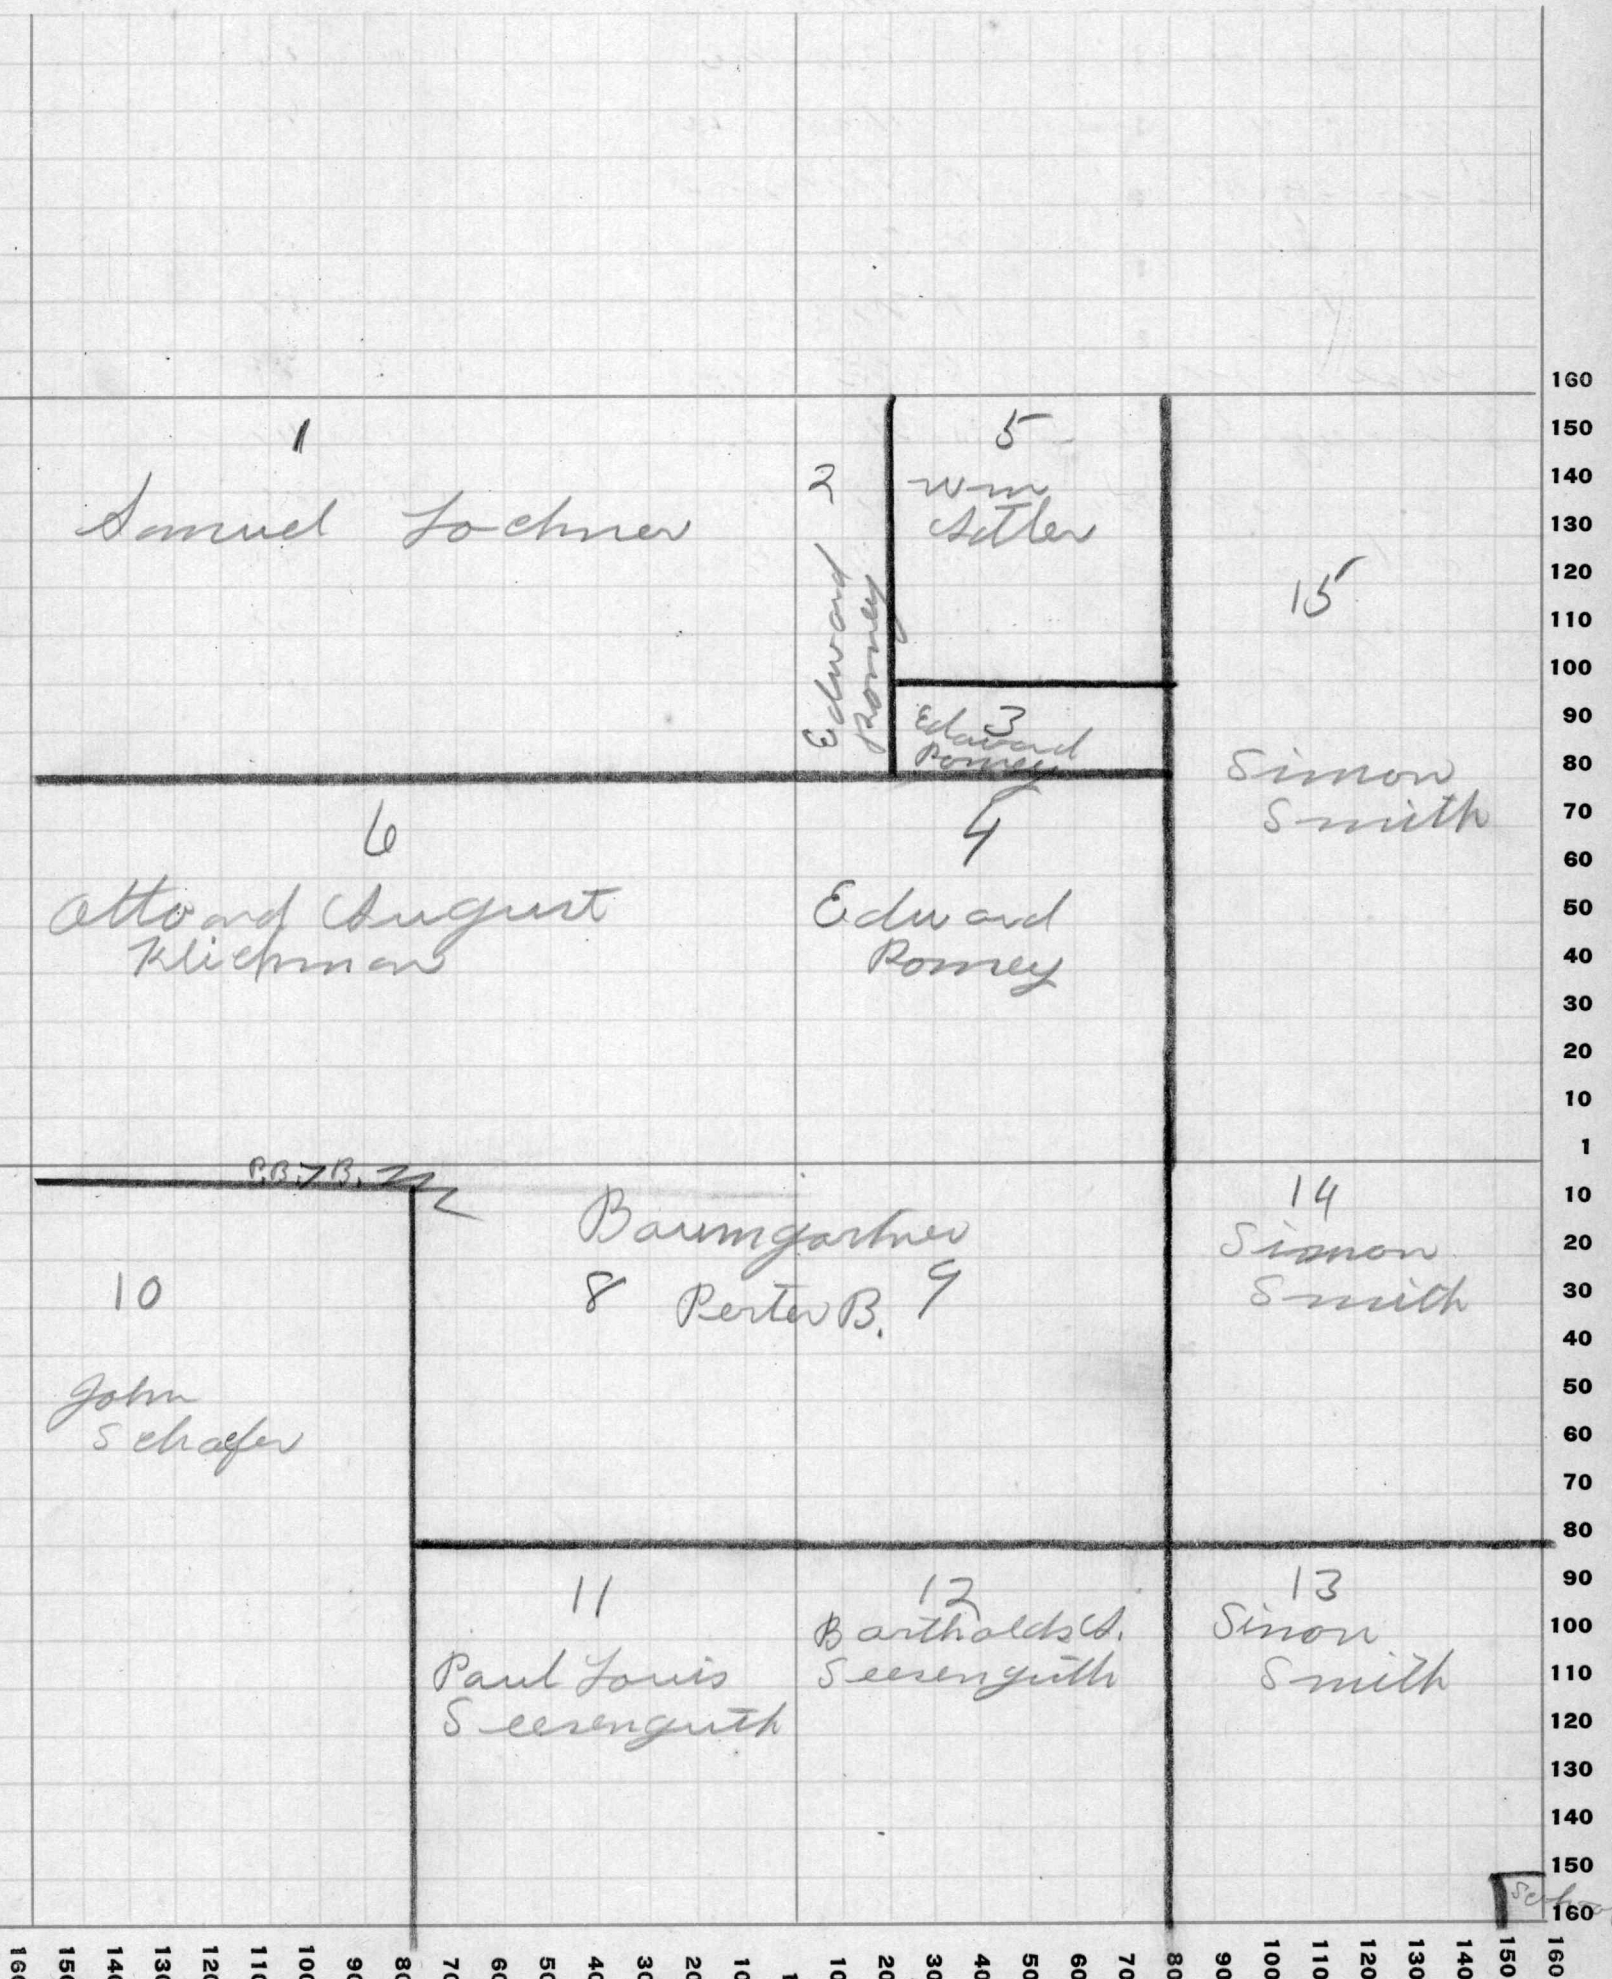 1
Samuel Lochner
2
Edward
Romey
5
Wm
Adler
15
Simon
Smith
3
Edward
Romey
6
Otto and August
Klichman
4
Edward
Romey
P.B. 7 B.
Baumgartner
8 Perter B. 9
14
Simon
Smith
10
John
Schafer
11
Paul Louis
Seesenguth
12
Bartholds A.
Seesenguth
13
Simon
Smith
School
160
150
140
130
120
110
100
90
80
70
60
50
40
30
20
10
1
10
20
30
40
50
60
70
80
90
100
110
120
130
140
150
160
160 150 140 130 120 110 100 90 80 70 60 50 40 30 20 10 1 10 20 30 40 50 60 70 80 90 100 110 120 130 140 150 160